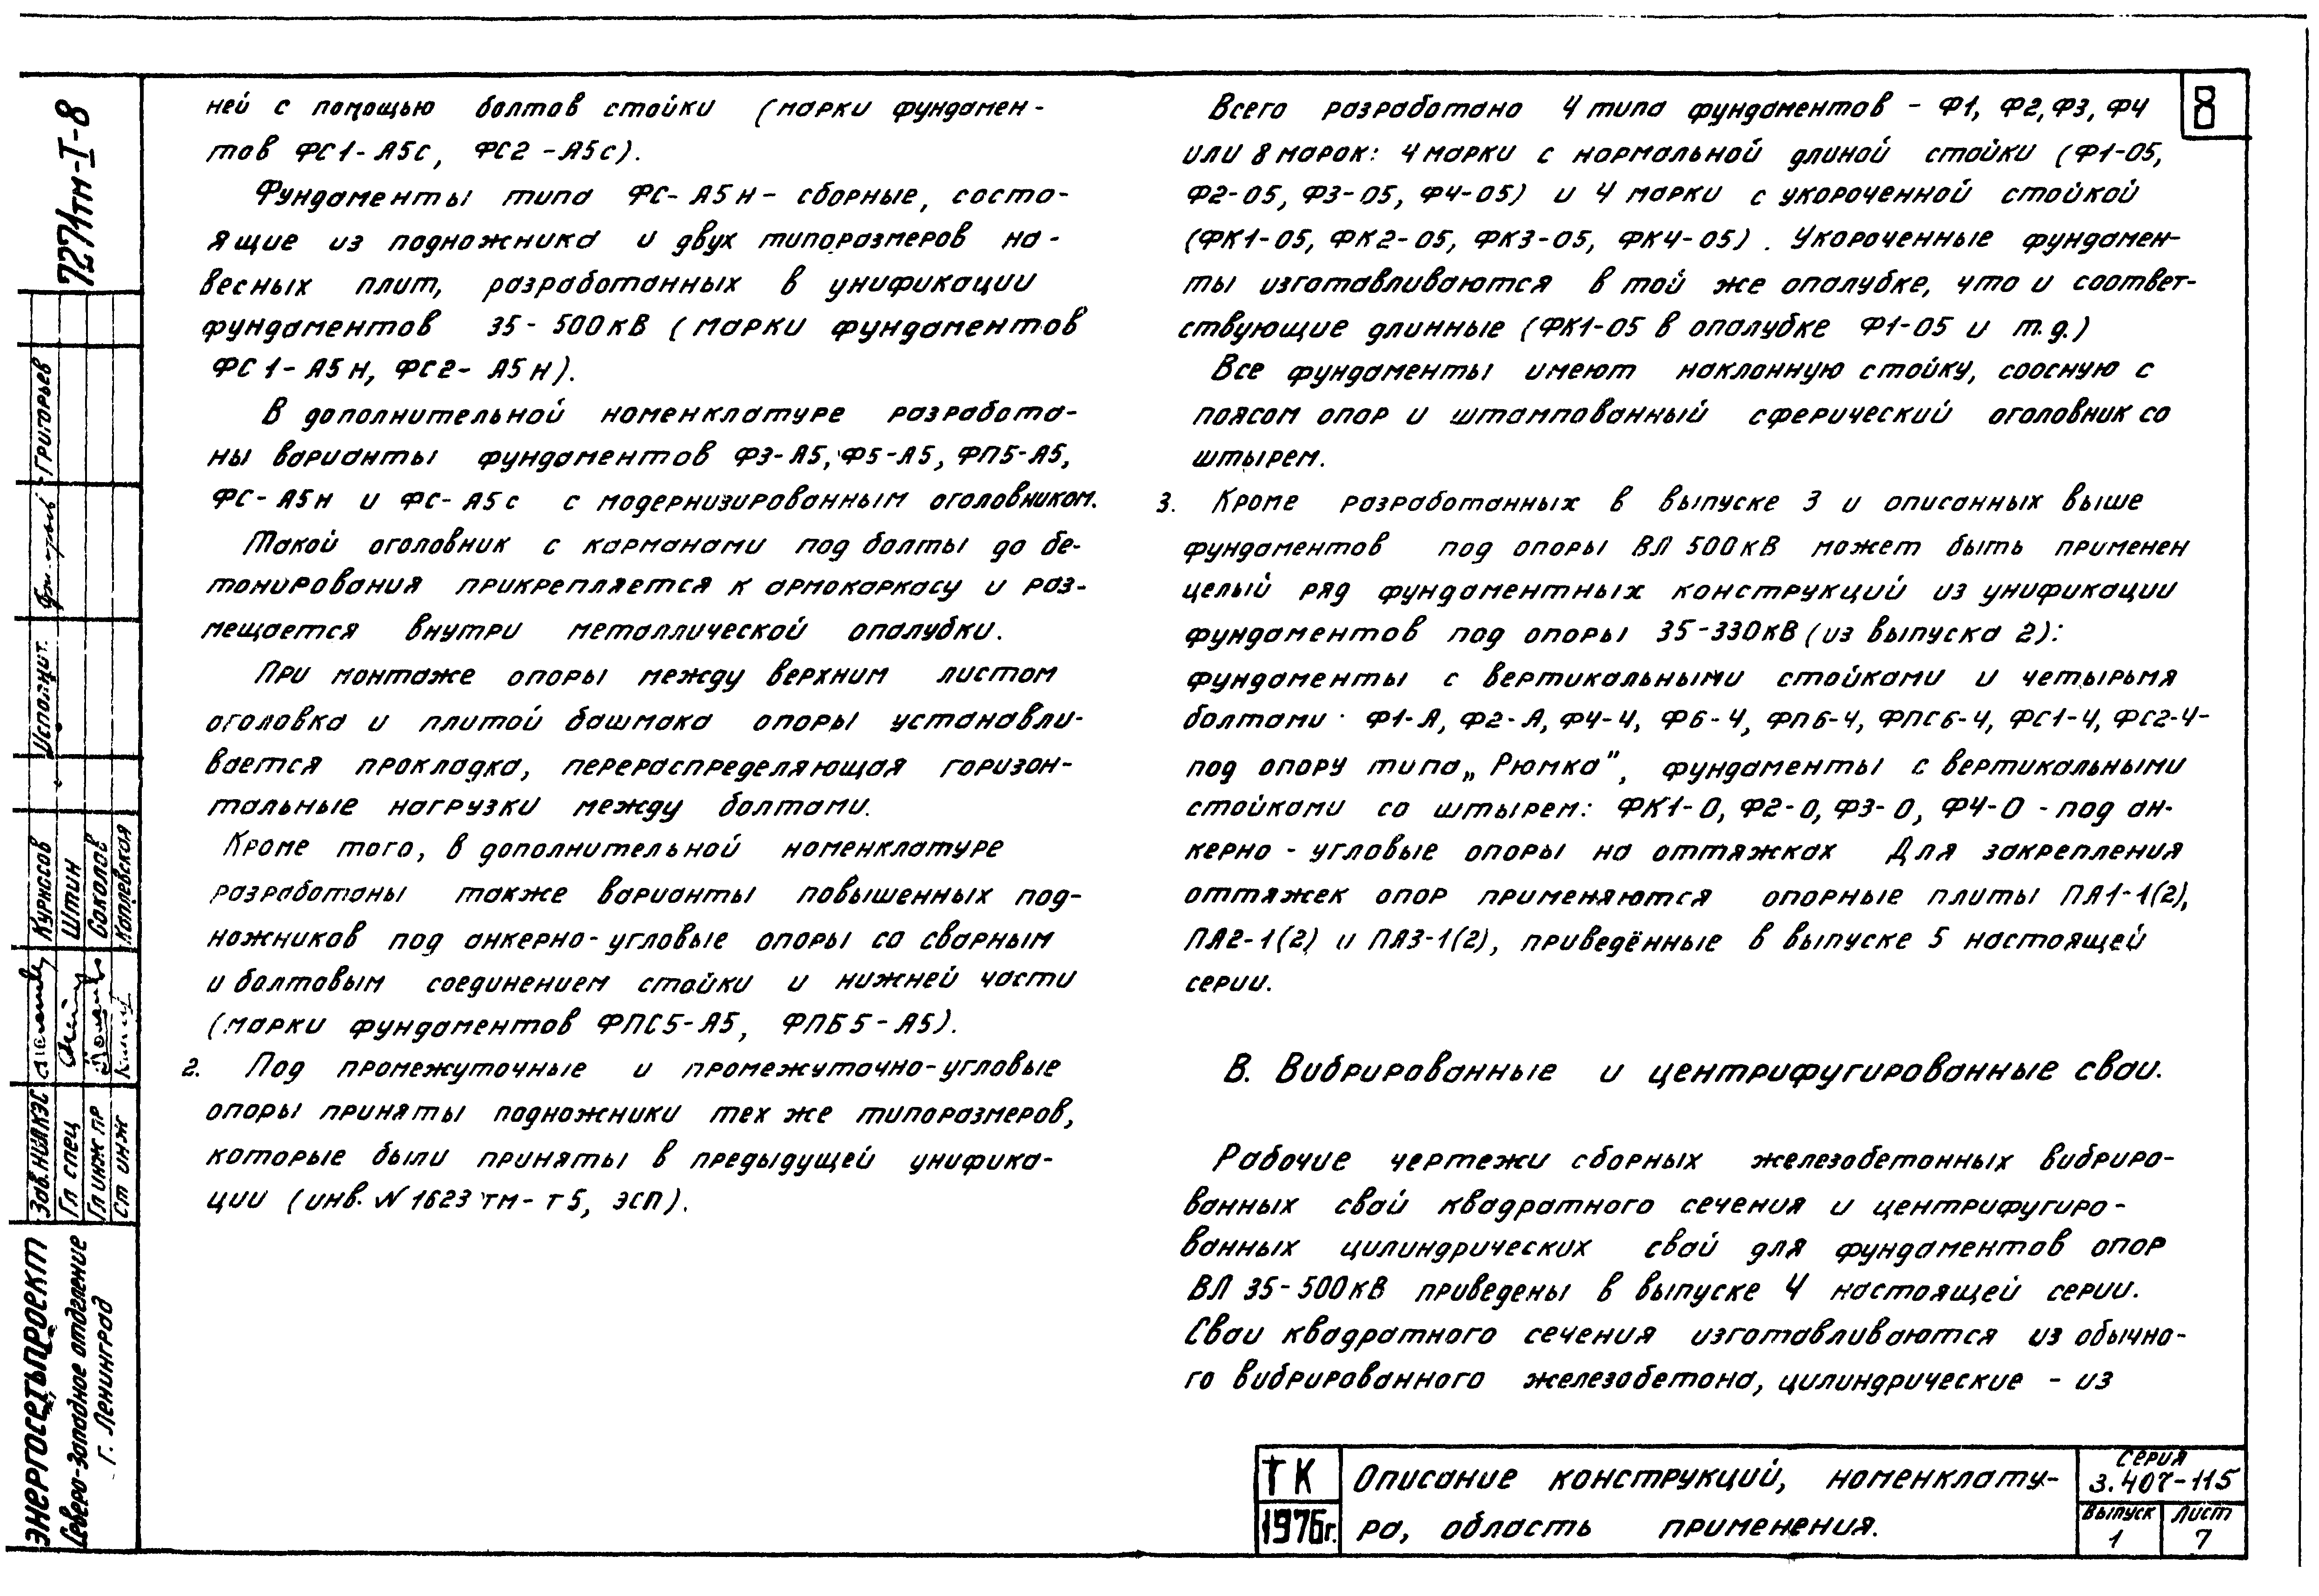 ней с помощью болтов стойки (марки фундамен-
тов ФС1-А5с, ФС2-А5с).
Фундаменты типа ФС-А5н - сборные, состо-
ящие из подножника и двух типоразмеров на-
весных плит, разработанных в унификации
фундаментов 35-500кВ (марки фундаментов
ФС1-А5н, ФС2-А5н).
В дополнительной номенклатуре разработа-
ны варианты фундаментов Ф3-А5, Ф5-А5, ФП5-А5,
ФС-А5н и ФС-А5с с модернизированным оголовником.
Такой оголовник с карманами под болты до бе-
тонирования прикрепляется к армокаркасу и раз-
мещается внутри металлической опалубки.
При монтаже опоры между верхним листом
оголовка и плитой башмака опоры устанавли-
вается прокладка, перераспределяющая горизон-
тальные нагрузки между болтами.
Кроме того, в дополнительной номенклатуре
разработаны также варианты повышенных под-
ножников под анкерно-угловые опоры со сварным
и болтовым соединением стойки и нижней части
(марки фундаментов ФПС5-А5, ФПБ5-А5).
2. Под промежуточные и промежуточно-угловые
опоры приняты подножники тех же типоразмеров,
которые были приняты в предыдущей унифика-
ции (инв. N 1623тм-т5, ЭСП).
Всего разработано 4 типа фундаментов - Ф1, Ф2, Ф3, Ф4
или 8 марок: 4 марки с нормальной длиной стойки (Ф1-05,
Ф2-05, Ф3-05, Ф4-05) и 4 марки с укороченной стойкой
(ФК1-05, ФК2-05, ФК3-05, ФК4-05). Укороченные фундамен-
ты изготавливаются в той же опалубке, что и соответ-
ствующие длинные (ФК1-05 в опалубке Ф1-05 и т.д.)
Все фундаменты имеют наклонную стойку, соосную с
поясом опор и штампованный сферический оголовник со
штырем.
3. Кроме разработанных в выпуске 3 и описанных выше
фундаментов под опоры ВЛ 500кВ может быть применен
целый ряд фундаментных конструкций из унификации
фундаментов под опоры 35-330кВ (из выпуска 2):
фундаменты с вертикальными стойками и четырьмя
болтами Ф1-А, Ф2-А, Ф4-4, Ф6-4, ФП6-4, ФПС6-4, ФС1-4, ФС2-4-
под опору типа „Рюмка", фундаменты с вертикальными
стойками со штырем: ФК1-0, Ф2-0, Ф3-0, Ф4-0 - под ан-
керно-угловые опоры на оттяжках Для закрепления
оттяжек опор применяются опорные плиты ПА1-1(2),
ПА2-1(2) и ПА3-1(2), приведённые в выпуске 5 настоящей
серии.
В. Вибрированные и центрифугированные сваи.
Рабочие чертежи сборных железобетонных вибриро-
ванных свай квадратного сечения и центрифугиро-
ванных цилиндрических свай для фундаментов опор
ВЛ 35-500кВ приведены в выпуске 4 настоящей серии.
Сваи квадратного сечения изготавливаются из обычно-
го вибрированного железобетона, цилиндрические - из
8
7271тм-I-8
Григорьев
Исполнит.
Курносов
Штин
Соколов
Зав. НИЛКЭС
Гл спец
Гл инж пр
Ст инж
Энергосетьпроект
Северо-Западное отделение
г. Ленинград
ТК
1976г.
Описание конструкций, номенклату-
ра, область применения.
Серия
3.407-115
Выпуск
1
Лист
7